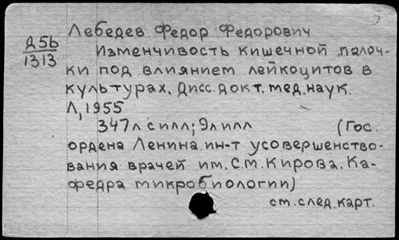 Лебедев Федор Федорович
Д56
1313
Изменчивость кишечной палоч-
ки под влиянием лейкоцитов в
культурах. Дисс. докт. мед. наук.
Л, 1955
347л с илл; 9л илл (Гос.
ордена Ленина ин-т усовершенство-
вания врачей им. С.М. Кирова. Ка-
федра микробиологии)
см. след. карт.